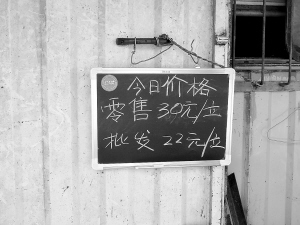 今日价格
零售 30元/位
批发 22元/位